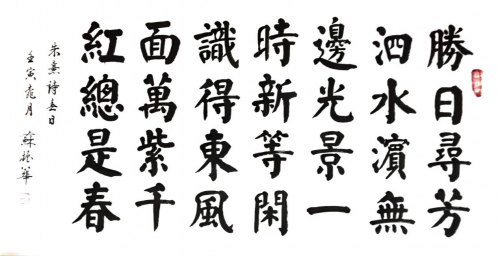 勝日尋芳
泗水濱無
邊光景一
時新等閑
識得東風
面萬紫千
紅總是春
朱熹詩春日
壬寅 月 蘇 華